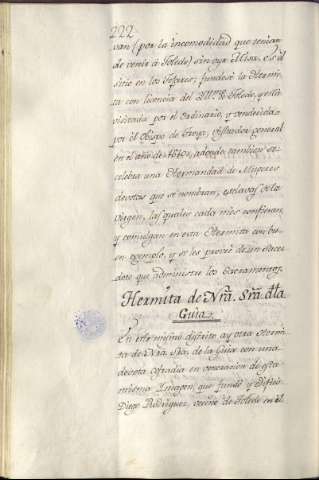 222
van (por la incomodidad que tenian
de venir à Toledo) sin oyr Misa, es el
sitio en los Texares; fundose la Hermi-
ta con licencia del de Toledo, y esta
visitada por el Ordinario, y vendicida
por el Obispo de Troya, visitador general
en el año de adonde tambien se
celebra una Hermandad de Mugeres
devotas que se nombran, esclavas de la
Virgen, las quales cada mes confiesan,
y comulgan en esta Hermita con bu-
en exemplo, y se les provee de un Sacer-
dote que administre los Sacramentos.
Hermita de Nrã. Srã. dla
Guia
En este mismo distrito ay otra Hermi-
ta de Nrã. Srã. de la Guia con una
devota cofradia en veneracion de esta
misma Imagen, que fundó y
Diego Rodriguez, vecino de Toledo en el